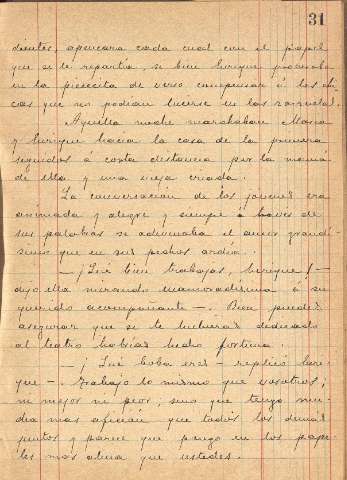 31
dientes, apencara cada cual con el papel
que se le repartia, si bien Enrique procuraba
en la piececita de verso compensar á los chi-
cos que no podian lucirse en las zarzuelas.
Aquella noche marchaban Maria
y Enrique hacia la casa de la primera
seguidos á corta distancia por la mamá
de ella y una vieja criada.
La conversación de los jóvenes era
animada y alegre y siempre á través de
sus palabras se adivinaba el amor grandi-
simo que en sus pechos ardía.
— ¡Qué bien trabajas, Enrique! —
dijo ella mirando enamoradisima á su
querido acompañante —. Bien puedes
asegurar que si te hubieras dedicado
al teatro habrías hecho fortuna.
— ¡Qué boba eres — replicó Enri-
que —. Trabajo lo mismo que vosotros;
ni mejor ni peor; sino que tengo mu-
cha mas afición que todos los demás
juntos y parece que pongo en los pape-
les más alma que ustedes.